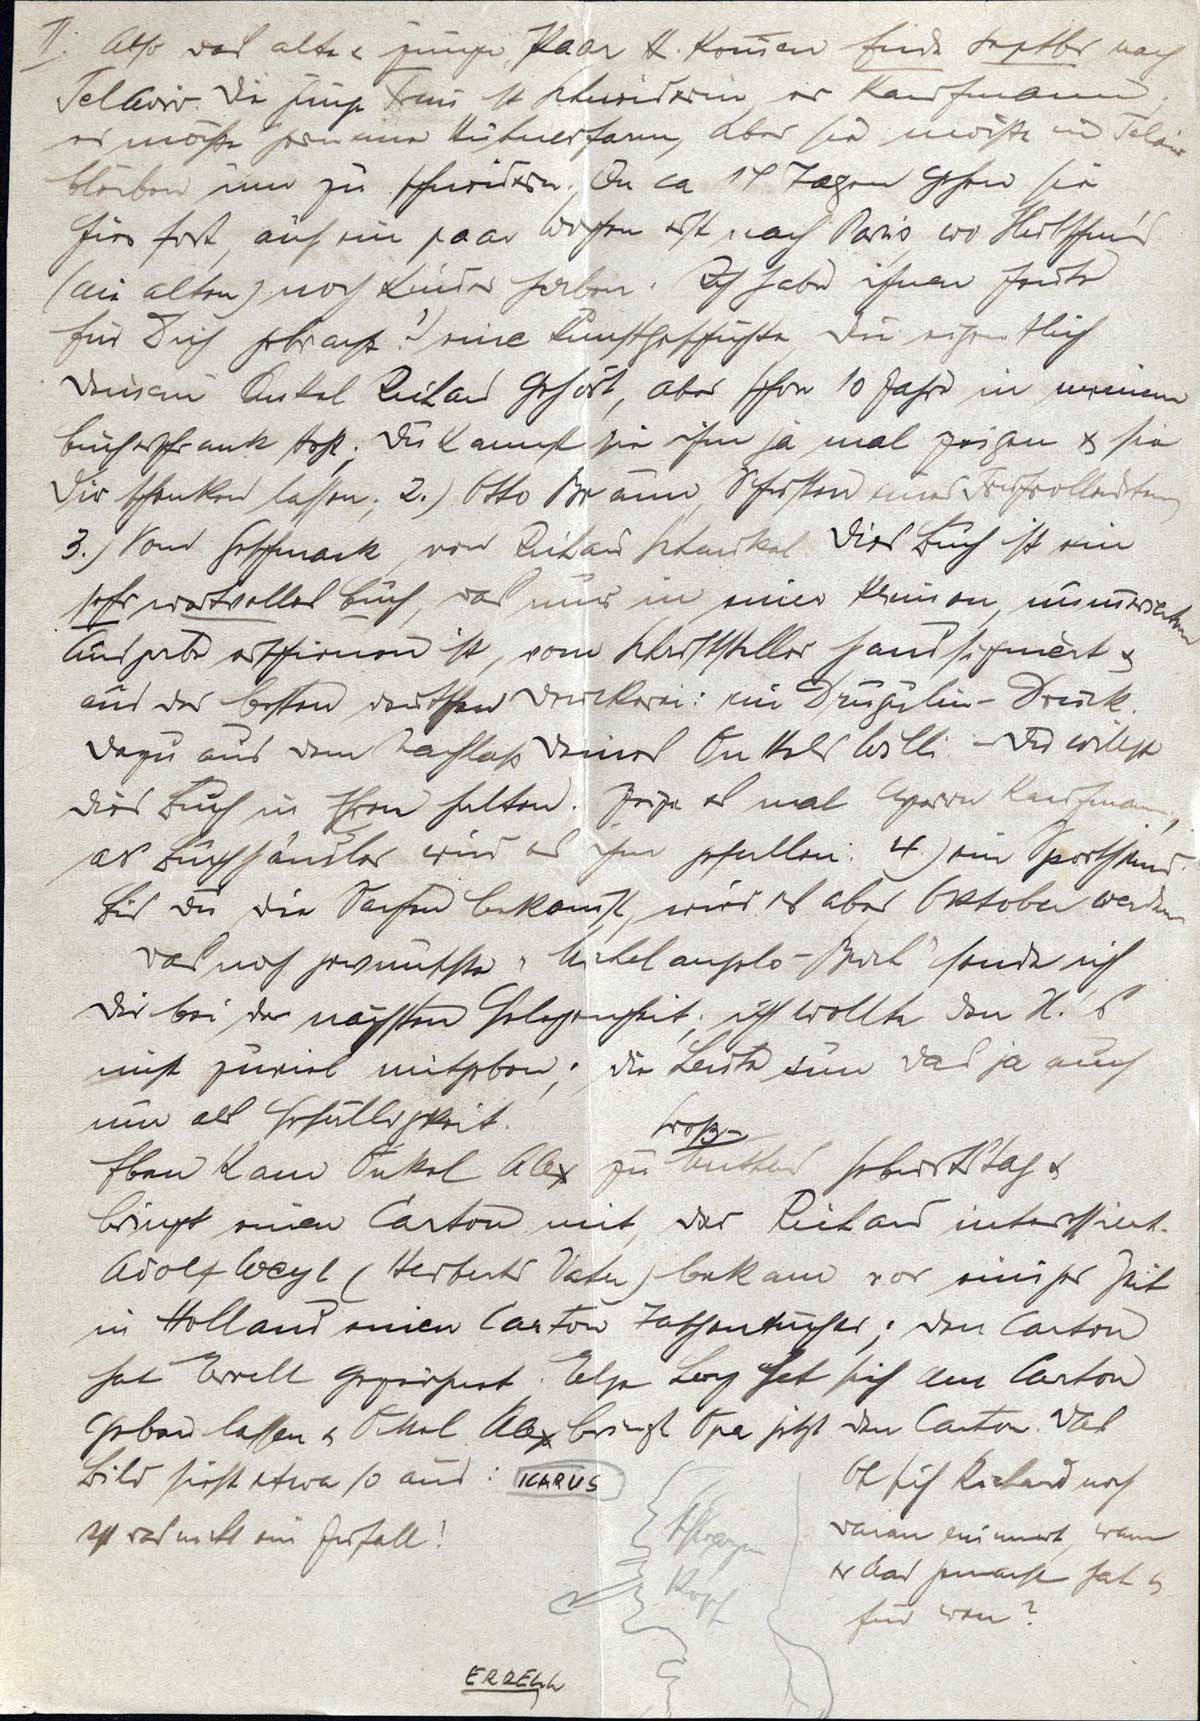 II. Also das alte & junge Paar H. kommen Ende Septbr nach
Tel Aviv. Die junge Frau ist Schneiderin, er Kaufmann;
er möchte gern eine Hühnerfarm, aber sie möchte in Telaviv
bleiben um zu schneidern. In ca 14 Tagen gehen sie
hier fort, auf ein paar Wochen erst nach Paris, wo
(die alten) noch Kinder haben. Ich habe ihnen heute
für Dich gebracht: 1) eine Kunstgeschichte die eigentlich
deinem Onkel Richard gehört, aber schon 10 Jahre in meinem
Bücherschrank steht; Du kannst sie ihm ja mal zeigen & sie
Dir schenken lassen; 2.) Otto Braun, Schriften eines Frühvollendeten
3.) Vom Geschmack, von Richard Schaukal. Dies Buch ist ein
sehr wertvolles Buch, das nur in einer kleinen, numerierten
Ausgabe erschienen ist, vom Schriftsteller handsigniert &
aus der besten deutschen Druckerei: ein Drugulin-Druck.
Dazu aus dem Nachlaß deines Onkels Willi. – Du willst
dies Buch in Ehren halten. Zeige es mal Kaufmann,
als Buchhändler wird es ihm gefallen. 4.) ein Sporthemd.
Bis Du die Sachen bekommst, wird es aber Oktober werden
Das noch gewünschte "Michelangelo-Buch" sende ich
Dir bei der nächsten Gelegenheit; ich wollte den H.'s
nicht zuviel mitgeben; die Leute tun das ja auch
nur als Gefälligkeit.
Eben kam Onkel Alex zu Großmutters Geburtstag &
bringt einen Carton mit, der Richard interessiert.
Adolf Weyl (Herberts Vater) bekam vor einiger Zeit
in Holland einen Carton Taschentücher; den Carton
hat Errell gezeichnet. Levy hat sich den Carton
geben lassen & Onkel Alex bringt Opa jetzt den Carton. Das
Bild sieht etwa so aus: ICARUS
Ist das nicht ein Zufall!
Ob sich Richard noch
daran erinnert, wann
er das gemacht hat &
für wen?
Kopf
ERRELL